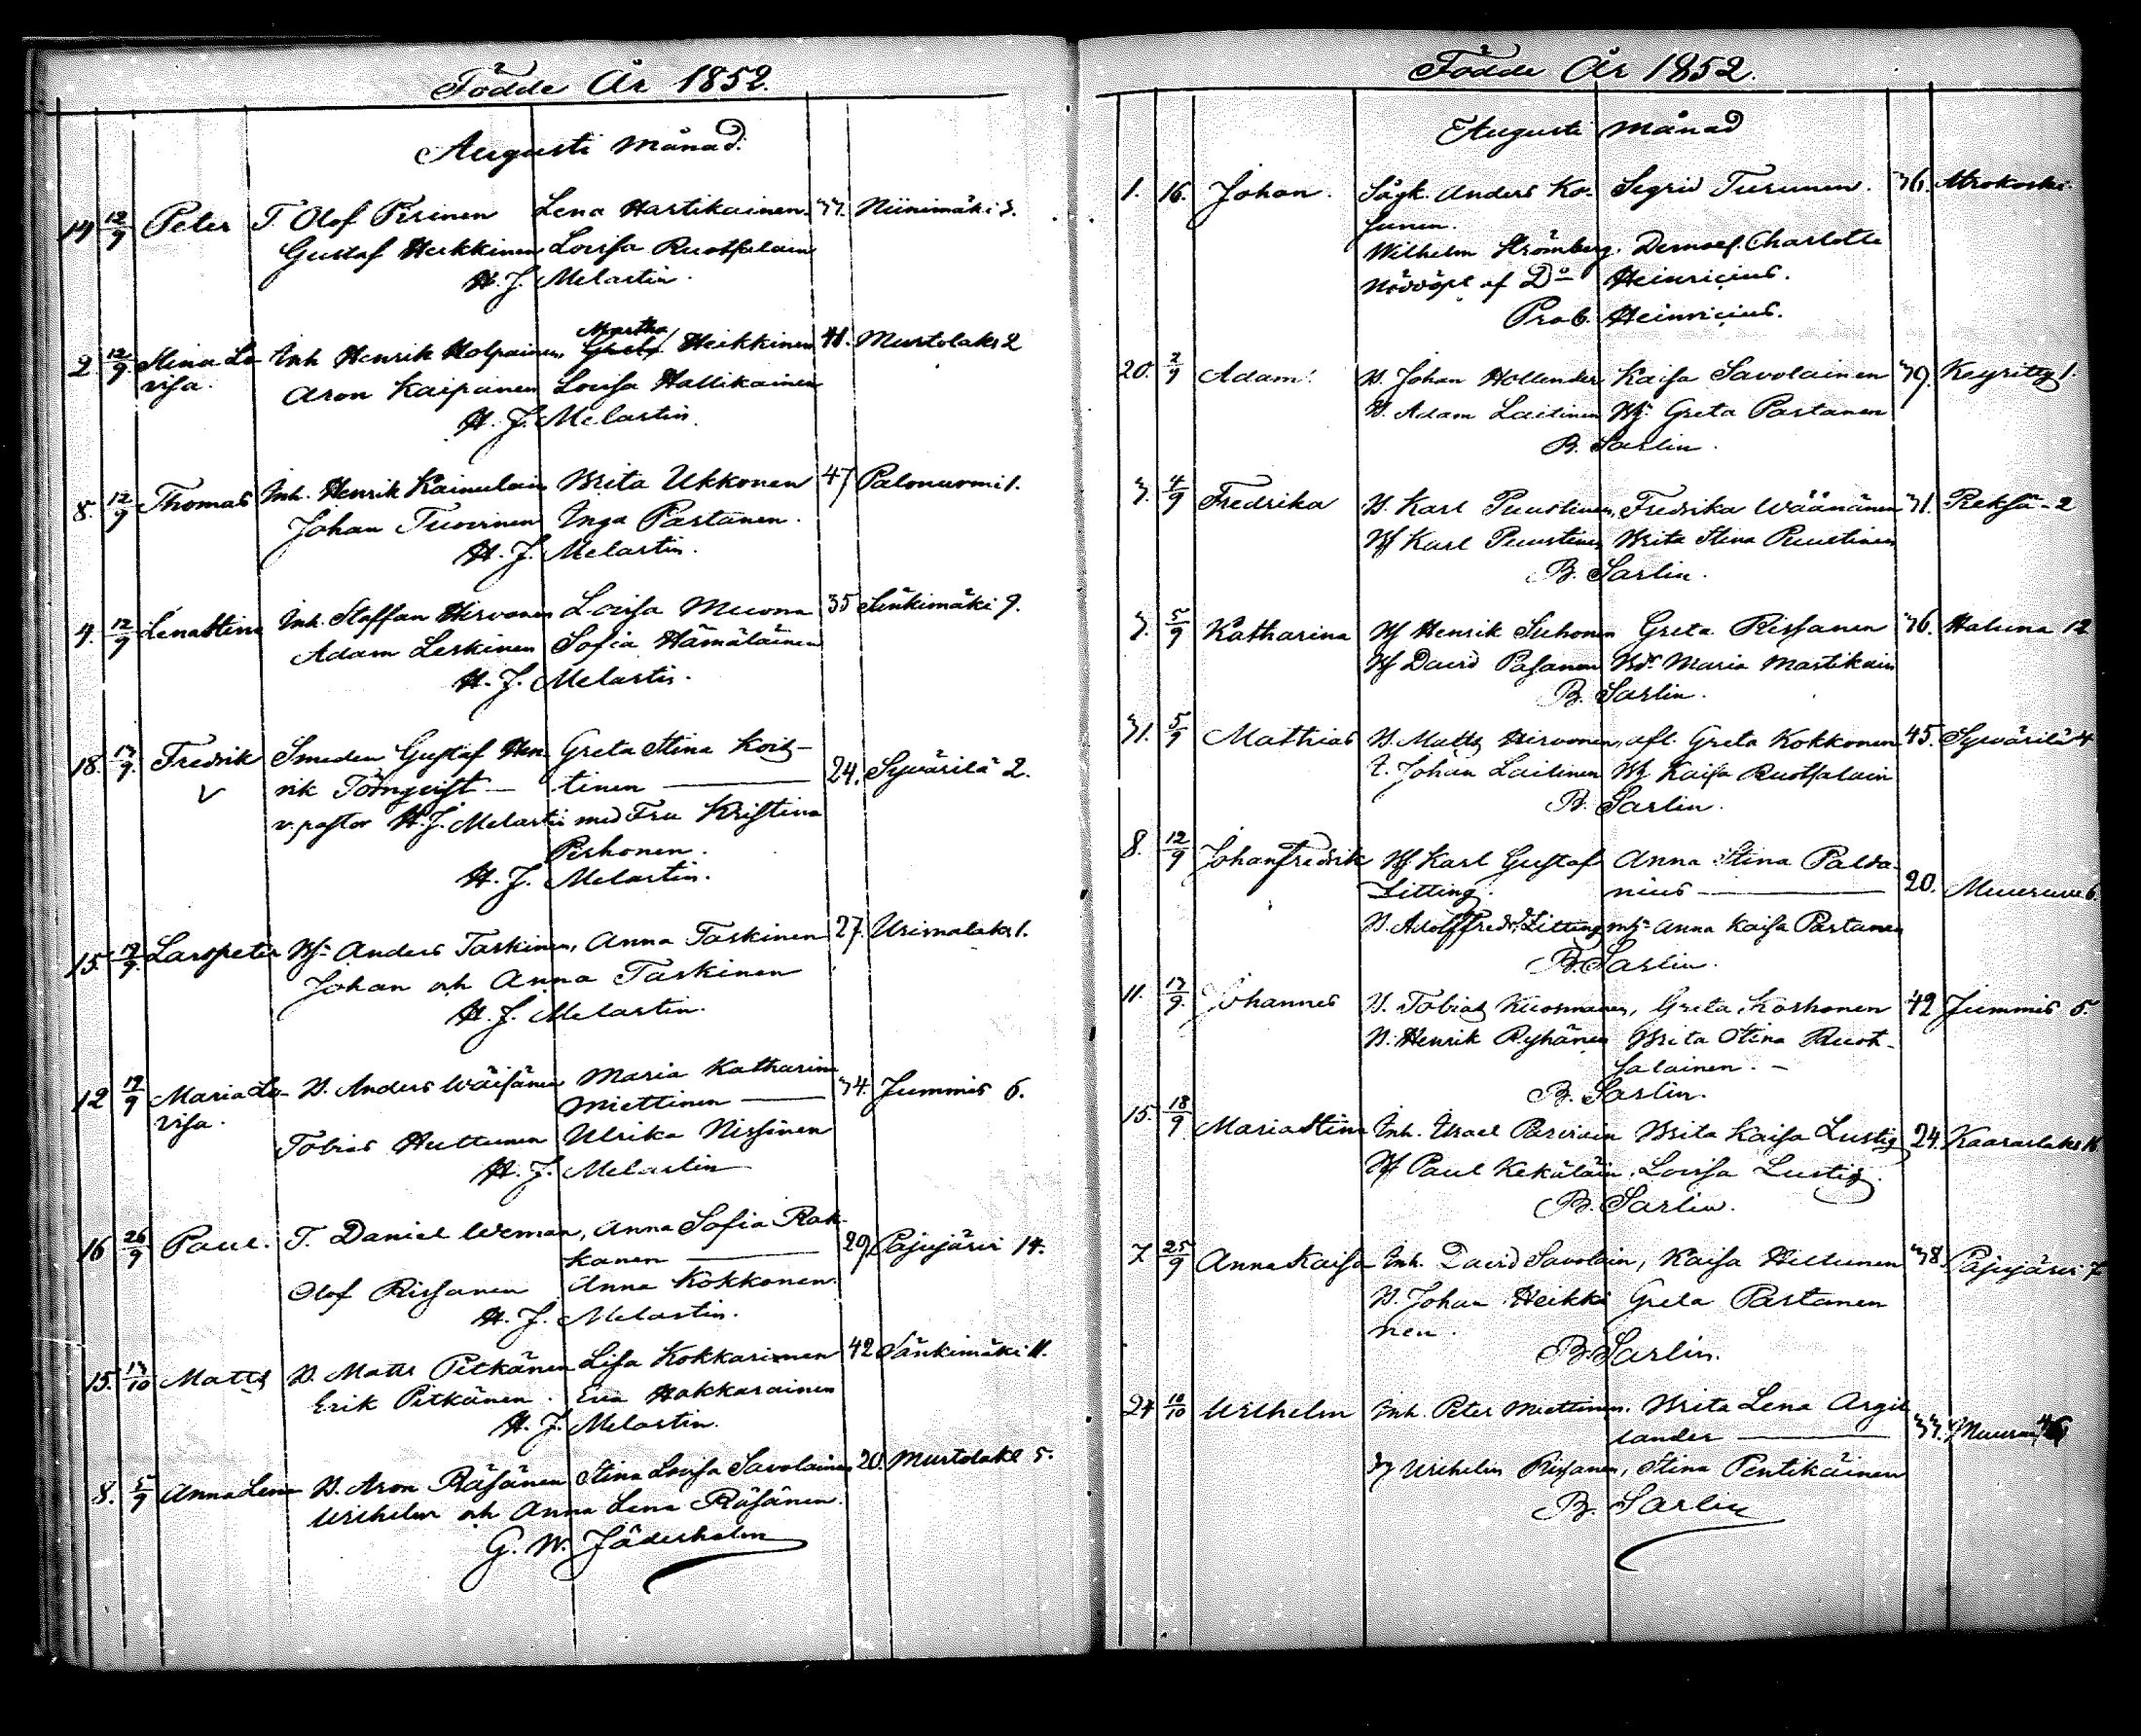 Födde År 1852.
Augusti Månad.
14 12/9 Peter T. Olof Pirinen Lena Hartikainen. 33. Niinimäki 3.
Gustaf Heikkinen Lovisa Ruotsalain
H. J. Melartin.
2. 12/9 Stina Lo- Inh Henrik Holpainen, Martha Heikkinen 41. Murtolaks 2
visa. Aron Kaipainen Lovisa Hallikainen
H. J. Melartin.
8. 12/9 Thomas Inh. Henrik Kainulain Brita Ukkonen 47 Palonurmi 1.
Johan Tuovinen Inga Partanen.
H. J. Melartin.
4. 12/9 Lena Stina Inh. Staffan Hirvonen Lovisa Muona 35 Sänkimäki 9.
Adam Leskinen Sofia Hämäläinen
H. J. Melartin.
18. 9. Fredrik Smeden Gustaf Hen- Greta Stina Kois-
rik Törnqvist — tinen — 24. Syvärilä 2.
v. pastor H. J. Melartin med Fru Kristina
Pirhonen.
H. J. Melartin.
15. 9. Lars peter Hf. Anders Taskinen, Anna Taskinen 27. Urimolaks 1.
Johan och Anna Taskinen
H. J. Melartin.
12 9 Maria Lo- B. Anders Wäisänen Maria Katharina 34. Jummis 6.
visa. Miettinen —
Tobias Huttunen Ulrika Nissinen
H. J. Melartin
16 26/9 Paul. T. Daniel Weman, Anna Sofia Rak-
kanen — 29. Pajujärvi 14.
Olof Rissanen Anna Kokkonen.
H. J. Melartin.
15. 13/10 Matts B. Matts Pitkänen Lisa Kokkarinen 42 Sänkimäki 11.
Erik Pitkänen. Eva Hakkarainen
H. J. Melartin.
8. 5/9 Anna Lena B. Aron Räsänen Stina Lovisa Savolainen 20. Murtolaks 5.
Wilhelm och Anna Lena Räsänen.
G. W. Jäderholm
Födde År 1852.
Augusti Månad
1. 16. Johan. Sågk. Anders Ko- Sigrid Turunen. 36. Atrokoski.
sunen.
Wilhelm Strömberg. Demoes. Charlotte
af Do Heinricius.
Prob. Heinricius.
20. 2/9 Adam. B. Johan Hollender Kaisa Savolainen 39. Keyritty 1.
B. Adam Laitinen Hf. Greta Partanen
B. Sarlin.
3. 4/9 Fredrika B. Karl Puustinen, Fredrika Wäänänen 31. Reksä - 2
Hf Karl Puustinen Brita Stina Puustinen
B. Sarlin.
3. 5/9 Katharina Hf Henrik Suhonen Greta Rissanen 36. Haluna 12
Hf David Pasanen Bdr. Maria Martikain
B. Sarlin.
31. 5/9 Mathias B. Matts Hirvonen, afl. Greta Kokkonen 45. Syvärilä 4
t. Johan Laitinen Hf Kaisa Ruotsalain
B. Sarlin.
8. 12/9 Johan fredrik Hf Karl Gustaf Anna Stina Palda-
Litting. nius — 20. Muuruvesi 6.
B. Adolf Fredr. Litting Anna Kaisa Partanen
B. Sarlin.
11. 9. Johannes B. Tobias Kuosmanen, Greta Korhonen 42 Jummis 5.
B. Henrik Ryhänen Brita Stina Ruot-
salainen. -
B. Sarlin.
15. 18/9 Maria Stina Inh. Israel Parviain Brita Kaisa Lustig 24. Kaaraslaks 16
Hf Paul Kekäläin, Lovisa Lustig.
B. Sarlin.
7. 25/9 Anna Kaisa Inh. David Savolain, Kaisa Hiltunen 38. Pajujärvi 7
B. Johan Heikki Greta Partanen
nen.
B. Sarlin.
24 10/10 Wilhelm Inh. Peter Miettinen. Brita Lena Argil-
lander — 33.
Wilhelm Rissanen, Stina Pentikäinen
B. Sarlin